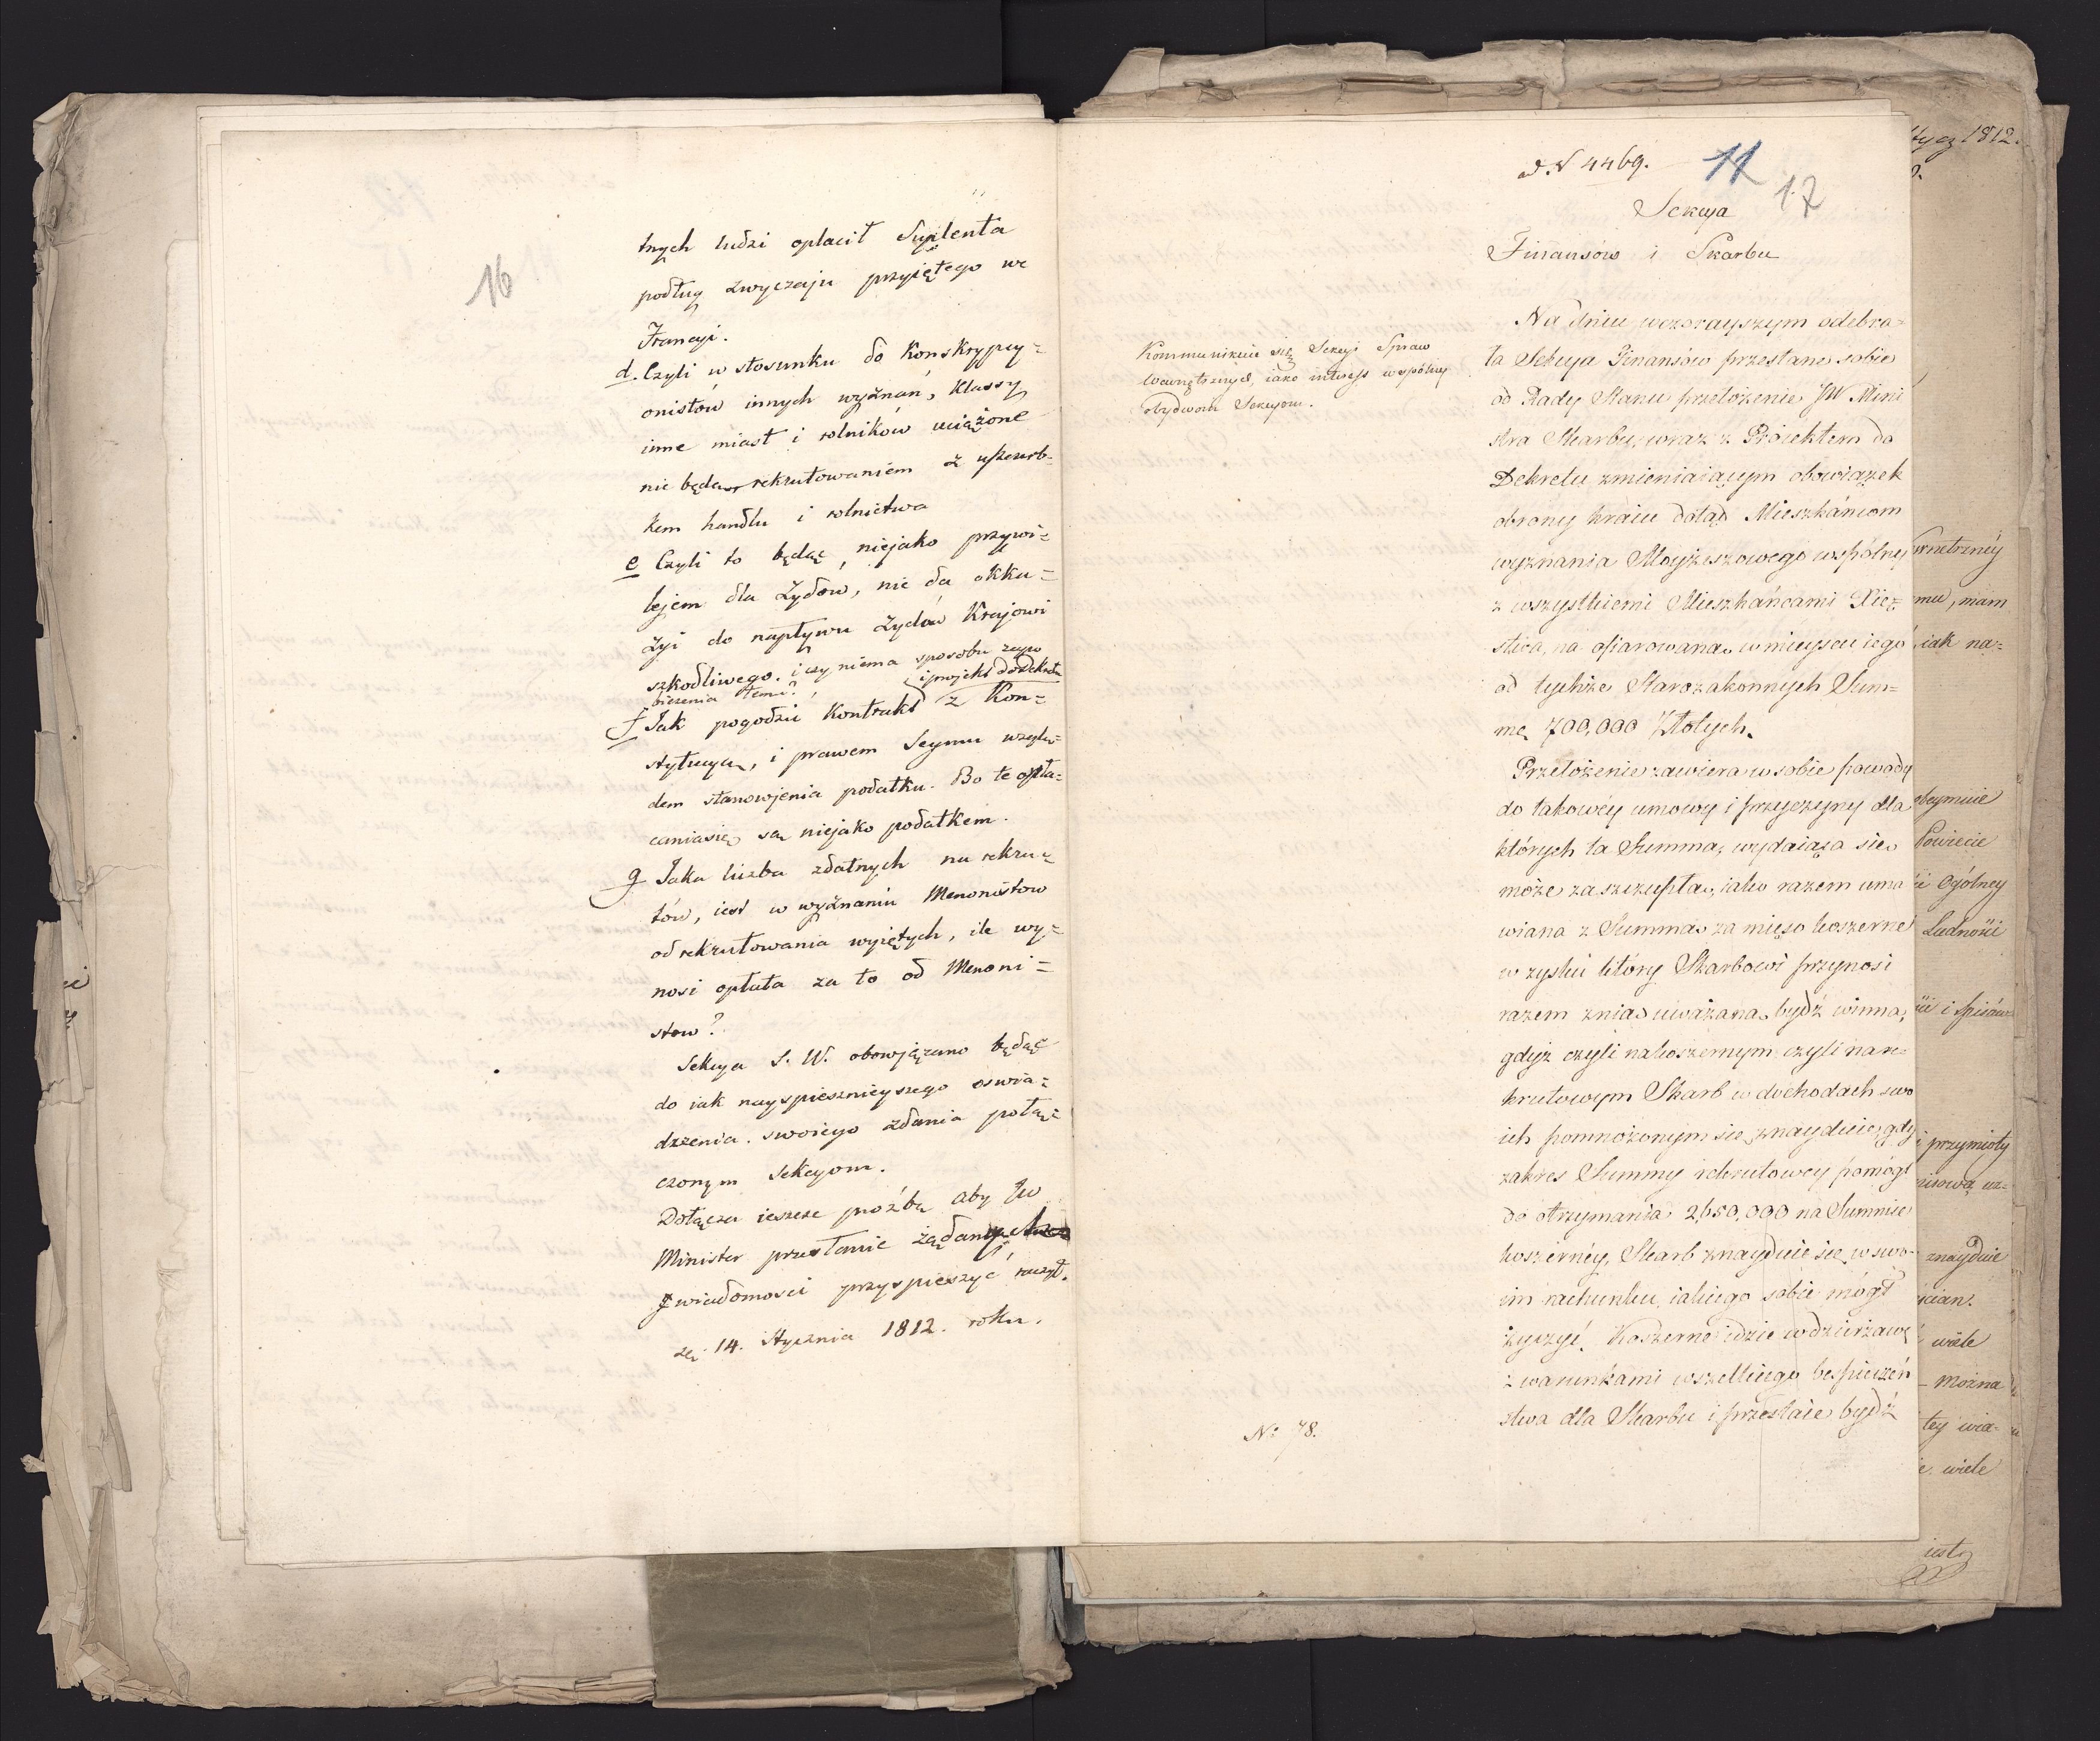 16
tnych ludzi opłacił Suplenta
podług zwyczaju przyjętego we
Francyi.
d. Czyli w stosunku do Konskrypcy=
onistów innych wyznań, Klassy
inne miast i rolników uciążone
nie będą rekrutowaniem z uszczerb=
kem handlu i rolnictwa
e Czyli to będąc niejako przywi=
lejem dla Żydów, nie da okka=
zyi do napływu Żydów Krajowi
szkodliwego. i czy niema sposobu zapo
bieżenia temu?
i projekt do Dekretu
f Jak pogodzić Kontrakt z Kon=
stytucyą, i prawem Seymu wzglę=
dem stanowjenia podatku. Bo te opła=
caniasię są niejako podatkiem.
g Jaka liczba zdatnych na rekru=
tów, iest w wyznaniu Menonistow
od rekrutowania wyiętych, ile wy=
nosi opłata za to od Menoni=
stow?
Sekcya S. W. obowjązano będąc
do iak nayspieszniejszego oswia=
dczenia swoiego zdania połą=
czonym Sekcyom.
Dołącza ieszcze proźbę aby JW
Minister przesłanie żądanych
wiadomosci przyspieszyć raczył.
14. Stycznia 1812. roku.
ad N 4469.
11
17
Sekcya
Finansów i Skarbu
Kommunikuie się Sekcyi Spraw
Wewnętrznych, iako interess wspólny
obydwom Sekcyom.
Na dniu wczorayszym odebra=
ła Sekcya Finansów przesłane sobie
od Rady Stanu przełożenie JW Mini
stra Skarbu, wraz z Proiektem do
Dekretu zmieniaiącym obowiązek
obrony kraiu dotąd Mieszkańcom
wyznania Moyżeszowego wspólny
z wszystkiemi Mieszkańcami Xię=
stwa, na ofiarowaną w mieyscu iego
od tychże Starozakonnych Sum=
mę 700,000 Złotych.
Przełożenie zawiera w sobie powody
do takowéy umowy i przyczyny dla
których ta Summa, wydaiąca się
może za szczupłą, iako razem uma
wiana z Summą za mięso koszerne
w zysku który Skarbowi przynosi
razem z nią uważaną bydź winna,
gdyż czyli na koszernym czyli na re=
krutowym Skarb w dochodach swo
ich pomnożonym się znayduie, gdy
zakres Summy rekrutowey pomógł
do otrzymania 2,650,000 na Summie
koszernéy, Skarb znayduie się w swo-
im rachunku, iakiego sobie mógł
życzyć. Koszerne idzie w dzierżawę
z warunkami wszelkiego bespieczeń
stwa dla Skarbu i przestaie bydź
No 78.
1812.
mu, mam
iak na=
obeymuie
Powiecie
Ogólney
Ludności
i przymioty
znayduie
wiele
można
tey wia-
wiele